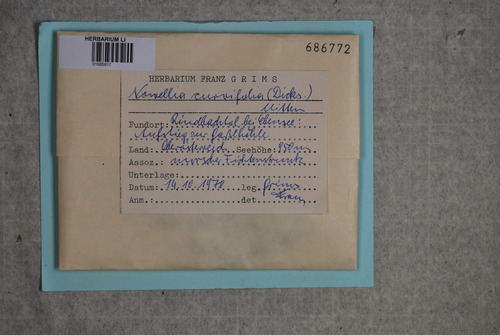 HERBARIUM LI
686772
HERBARIUM FRANZ GRIMS
Nowellia curvifolia (Dicks.)
Mitten
Fundort: Rindbachtal bei Ebensee:
Aufstieg zur
Land: Oberösterreich Seehöhe: 950m
Assoz.: morscher Fichtenstrunk
Unterlage:
Datum: 14.10.1970 leg. Grims
Anm.: det. Franz